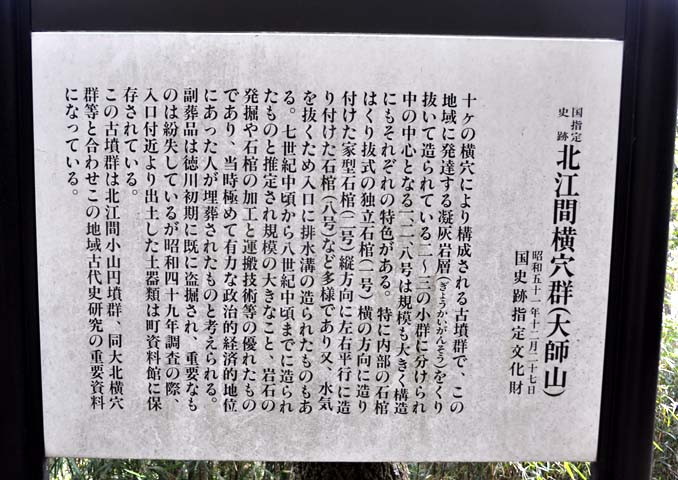 国指定
史跡 北江間横穴群(大師山)
昭和五十一年十二月二十七日
国史跡指定文化財
十ヶの横穴により構成される古墳群で、この
地域に発達する凝灰岩層(ぎょうかいがんそう)をくり
抜いて造られている二〜三の小群に分けられ
中の中心となる一、二、八号は規模も大きく構造
にもそれぞれの特色がある。特に内部の石棺
はくり抜式の独立石棺(一号)横の方向に造り
付けた家型石棺(二号)縦方向に左右平行に造
り付けた石棺(八号)など多様であり又、水気
を抜くため入口に排水溝の造られたものもあ
る。七世紀中頃から八世紀中頃までに造られ
たものと推定され規模の大きなこと、岩石の
発掘や石棺の加工と運搬技術等の優れたもの
であり、当時極めて有力な政治的経済的地位
にあった人が埋葬されたものと考えられる。
副葬品は徳川初期に既に盗掘され、重要なも
のは紛失しているが昭和四十九年調査の際、
入口付近より出土した土器類は町資料館に保
存されている。
この古墳群は北江間小山円墳群、同大北横穴
群等と合わせこの地域古代史研究の重要資料
になっている。